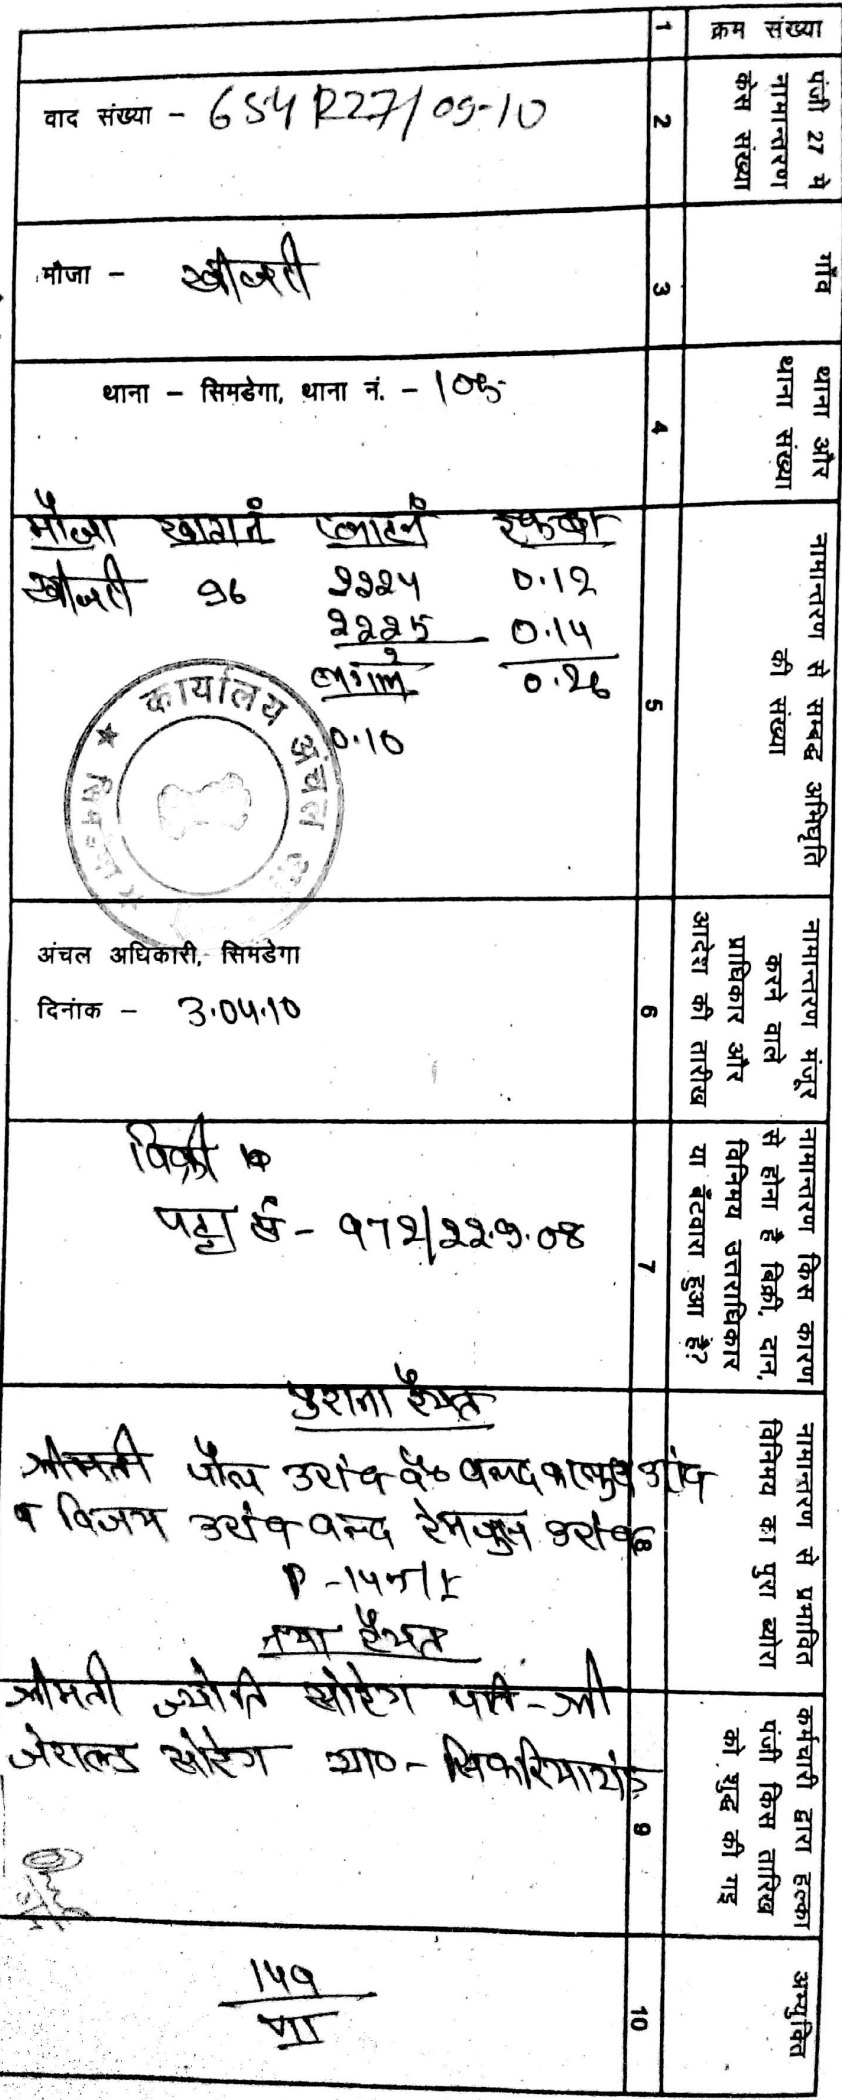 क्रम संख्या
1
पंजी 27 मे
नामान्तरण
केस संख्या
2
वाद संख्या - 654 R27/09-10
गाँव
3
मौजा - खीजरी
थाना और
थाना संख्या
4
थाना - सिमडेगा, थाना नं. - 105
नामान्तरण से सम्बद्ध अभिधृति
की संख्या
5
मौजा खाता नं प्लाट नं रकबा
खीजरी 96 2224 0.12
2225 0.14
2 0.26
लगान
0.10
कार्यालय अंचल
नामान्तरण मंजूर
करने वाले
प्राधिकार और
आदेश की तारीख
6
अंचल अधिकारी, सिमडेगा
दिनांक - 3.04.10
नामान्तरण किस कारण
से होना है बिक्री, दान,
विनिमय उत्तराधिकार
या बँटवारा हुआ है?
7
बिक्री
पट्टा सं - 972/22.9.08
नामान्तरण से प्रभावित
विनिमय का पुरा ब्योरा
8
पुराना रैयत
श्रीमती पौल उरांव वल्द उरांव
व विजय उरांव वल्द उरांव
नया रैयत
कर्मचारी द्वारा हल्का
पंजी किस तारिख
को शुद्ध की गइ
9
श्रीमती ज्योति सोरेंग पति - श्री
जेराल्ड सोरेंग ग्रा० -
अभ्युक्ति
10
149
VII